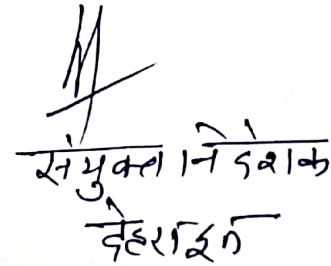 संयुक्त निदेशक
देहरादून